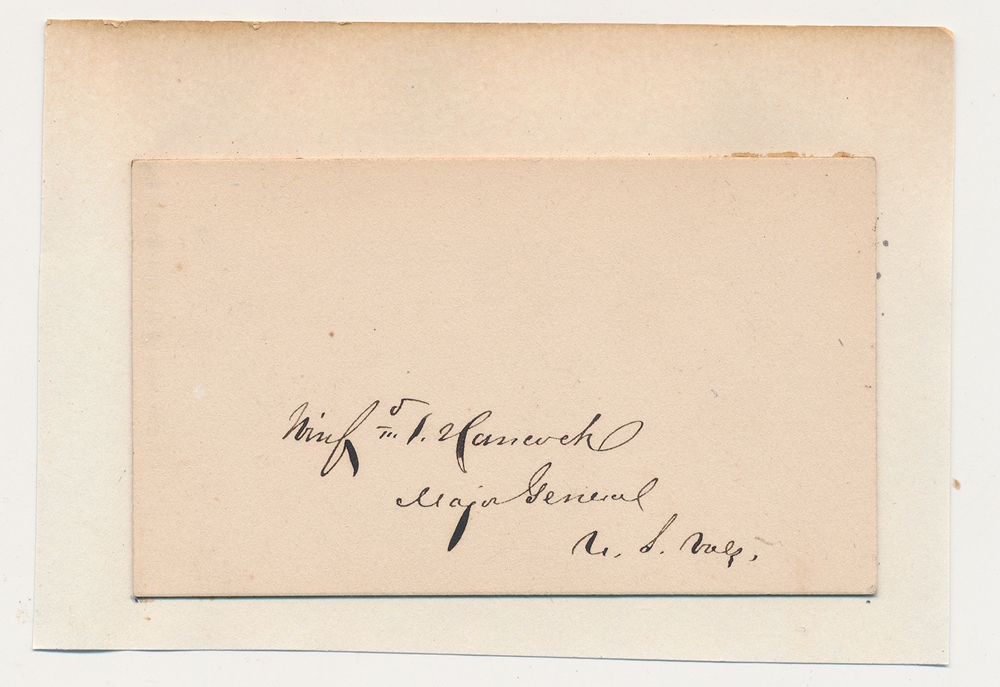 Winfd S. Hancock
Major General
U. S. Vols.